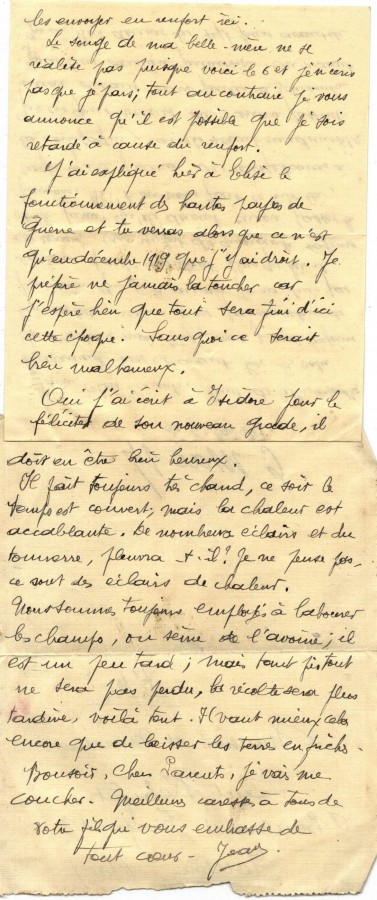 les envoyer en renfort ici.
Le songe de ma belle-mère ne se
réalise pas puisque voici le 6 et je n'écris
pas que je pars; tout au contraire je vous
annonce qu'il est possible que je sois
retardé à cause du renfort.
J'ai expliqué hier à Elise le
fonctionnement des hautes payes de
guerre et tu verras alors que ce n'est
qu'en décembre 1919 que j'y ai droit. Je
préfère ne jamais la toucher car
j'espère bien que tout sera fini d'ici
cette époque. Sans quoi ce serait
bien malheureux.
Oui j'ai écrit à Isidore pour le
féliciter de son nouveau grade, il
doit en être bien heureux.
Il fait toujours très chaud, ce soir le
temps est couvert; mais la chaleur est
accablante. De nombreux éclairs et du
tonnerre, pleuvra-t-il? Je ne pense pas,
ce sont des éclairs de chaleur.
Nous sommes toujours employés à labourer
les champs, on sème de l'avoine; il
est un peu tard; mais tant pis tout
ne sera pas perdu, la récolte sera plus
tardive, voilà tout. Il vaut mieux cela
encore que de laisser les terres en friche.
Bonsoir, chers Parents, je vais me
coucher. Meilleures caresses à tous de
votre fils qui vous embrasse de
tout coeur - Jean